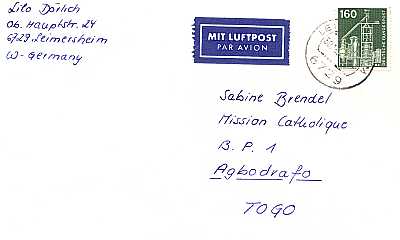 Lilo Dörlich
Ob. Hauptstr. 24
6729 Leimersheim
W-Germany
MIT LUFTPOST
PAR AVION
160
DEUTSCHE BUNDESPOST
Sabine Brendel
Mission Catholique
B.P. 1
Agbodrafo
TOGO